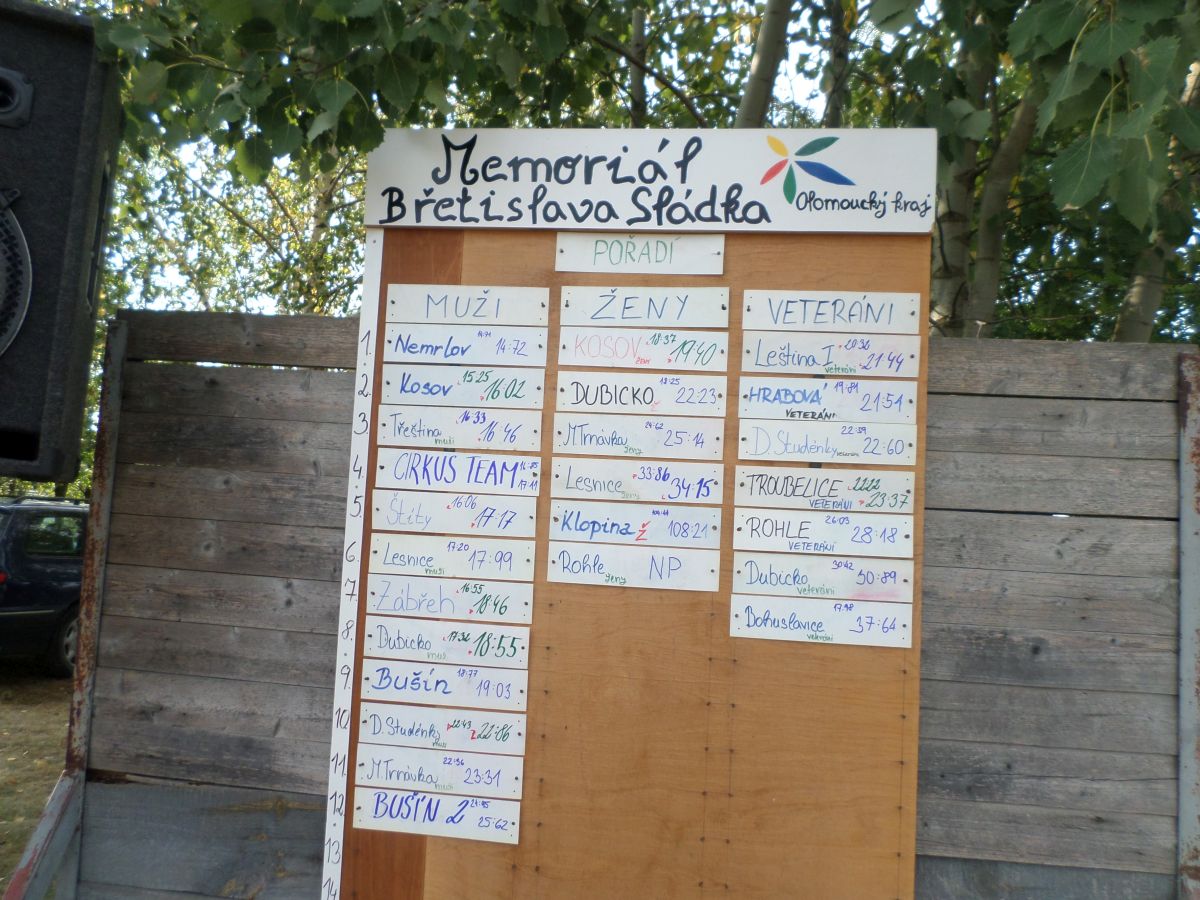 Memoriál
Břetislava Sládka
Olomoucký kraj
POŘADÍ
MUŽI
1. Nemrlov 14:71 14:72
2. Kosov 15:25 16:02
3. Třeština muži 16:33 16:46
4. CIRKUS TEAM 16:85 17:11
5. Štíty 16:06 17:17
6. Lesnice muži 17:20 17:99
7. Zábřeh 16:55 18:46
8. Dubicko muži 17:32 18:55
9. Bušín 18:77 19:03
10. D. Studénky muži 22:43 22:86
11. M. Trnávka muži 22:36 23:31
12. BUŠÍN 2 24:85 25:62
13
14
ŽENY
KOSOV ženy 18:37 19:40
DUBICKO Ž 18:25 22:23
M. Trnávka ženy 24:62 25:14
Lesnice ženy 33:86 34:15
Klopina Ž 108:21
Rohle ženy NP
VETERÁNI
Leština I veteráni 21:44
HRABOVÁ VETERÁNI 19:81 21:51
D. Studénky veteráni 22:39 22:60
TROUBELICE VETERÁNI 22:22 23:37
ROHLE VETERÁNI 26:03 28:18
Dubicko veteráni 30:42 30:89
Bohuslavice veteráni 37:64